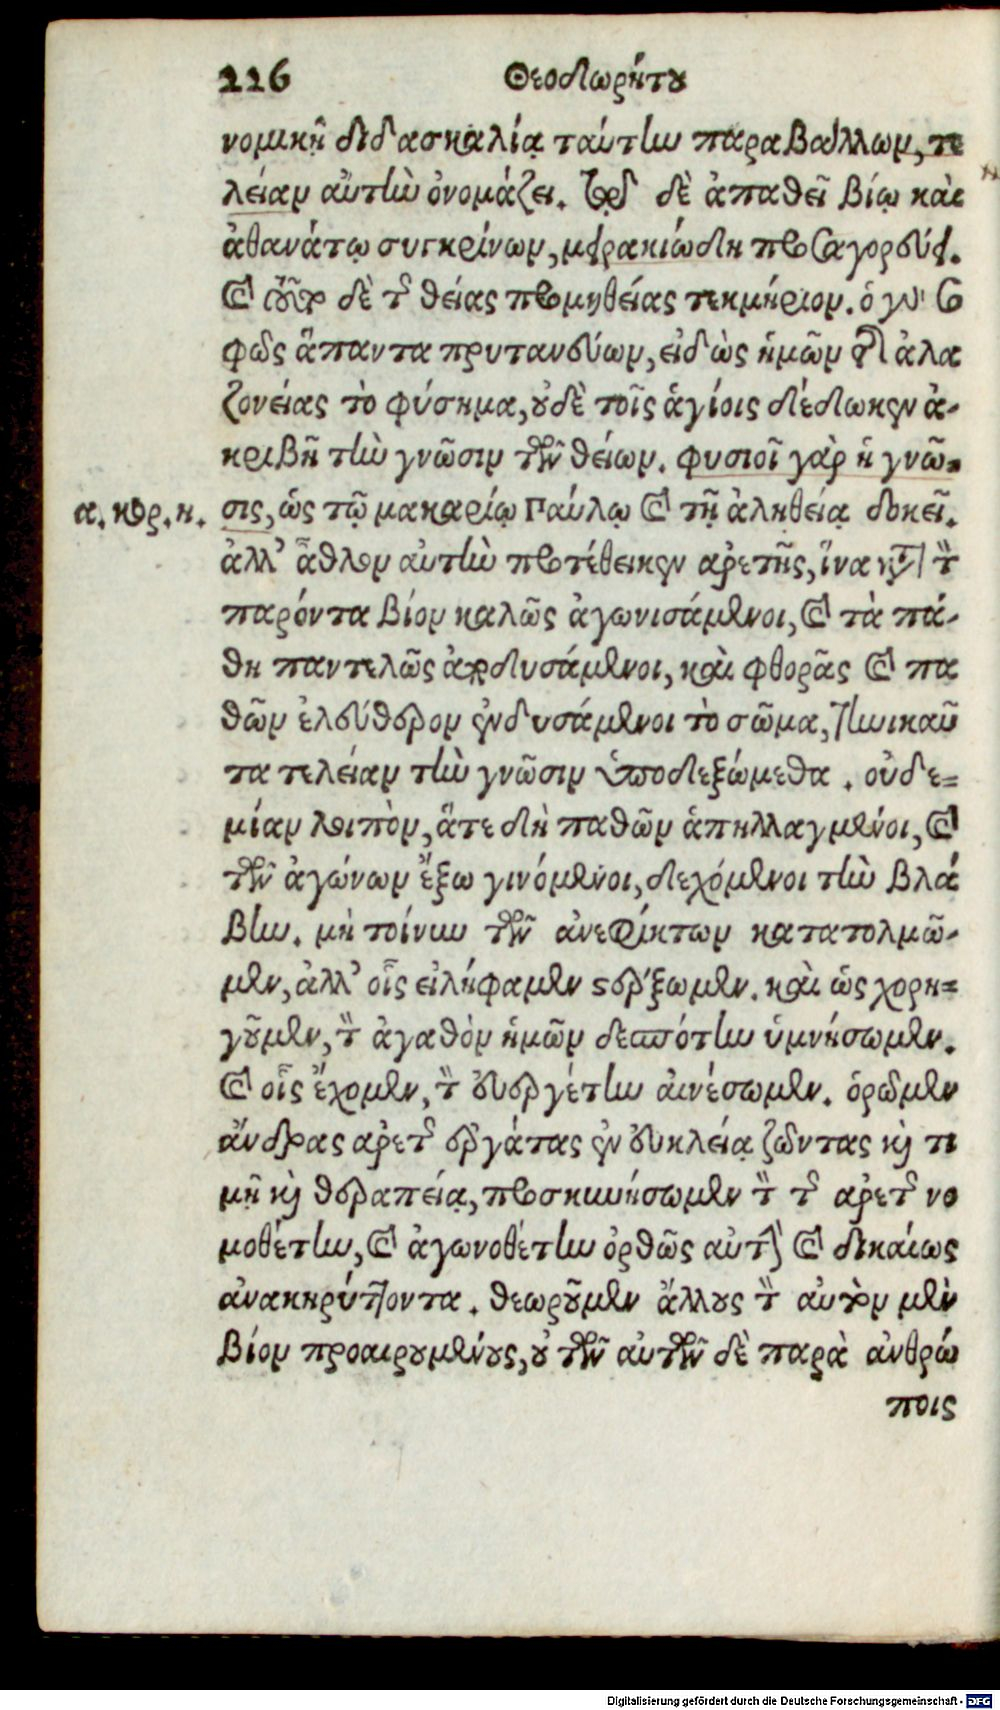 226 Θεοδωρήτου
νομικῇ διδασκαλίᾳ ταύτην παραβάλλων, τε
λείαν αὐτὴν ὀνομάζει. τῷ δὲ ἀπαθεῖ βίῳ καὶ
ἀθανάτῳ συγκρίνων, μειρακιώδη προσαγορεύει.
καὶ τοῦτο δὲ τῆς θείας προμηθείας τεκμήριον. ὁ γὰρ σο
φῶς ἅπαντα πρυτανεύων, εἰδὼς ἡμῶν τῆς ἀλα
ζονείας τὸ φύσημα, οὐδὲ τοῖς ἁγίοις δέδωκεν ἀ-
κριβῆ τὴν γνῶσιν τῶν θείων. φυσιοῖ γὰρ ἡ γνῶ-
α. κορ. η. σις, ὡς τῷ μακαρίῳ Παύλῳ καὶ τῇ ἀληθείᾳ δοκεῖ.
ἀλλ' ἆθλον αὐτὴν προτέθεικεν ἀρετῆς, ἵνα κατὰ τὸν
παρόντα βίον καλῶς ἀγωνισάμενοι, καὶ τὰ πά-
θη παντελῶς ἀποδυσάμενοι, καὶ φθορᾶς καὶ πα
θῶν ἐλεύθερον ἐνδυσάμενοι τὸ σῶμα, τηνικαῦ
τα τελείαν τὴν γνῶσιν ὑποδεξώμεθα. οὐδε-
μίαν λοιπὸν, ἅτε δὴ παθῶν ἀπηλλαγμένοι, καὶ
τῶν ἀγώνων ἔξω γινόμενοι, δεχόμενοι τὴν βλά
βην. μὴ τοίνυν τῶν ἀνεφίκτων κατατολμῶ-
μεν, ἀλλ' οἷς εἰλήφαμεν στέρξωμεν. καὶ ὡς χορη-
γοῦμεν, τὸν ἀγαθὸν ἡμῶν δεσπότην ὑμνήσωμεν.
καὶ οἷς ἔχομεν, τὸν εὐεργέτην αἰνέσωμεν. ὁρῶμεν
ἄνδρας ἀρετῆς ἐργάτας ἐν εὐκλείᾳ ζῶντας καὶ τι
μῇ καὶ θεραπείᾳ, προσκυνήσωμεν τὸν τῆς ἀρετῆς νο
μοθέτην, καὶ ἀγωνοθέτην ὀρθῶς αὐτοὺς καὶ δικαίως
ἀνακηρύττοντα. θεωροῦμεν ἄλλους τὸν αὐτὸν μὲν
βίον προαιρουμένους, οὐ τῶν αὐτῶν δὲ παρὰ ἀνθρώ
ποις
Digitalisierung gefördert durch die Deutsche Forschungsgemeinschaft - DFG